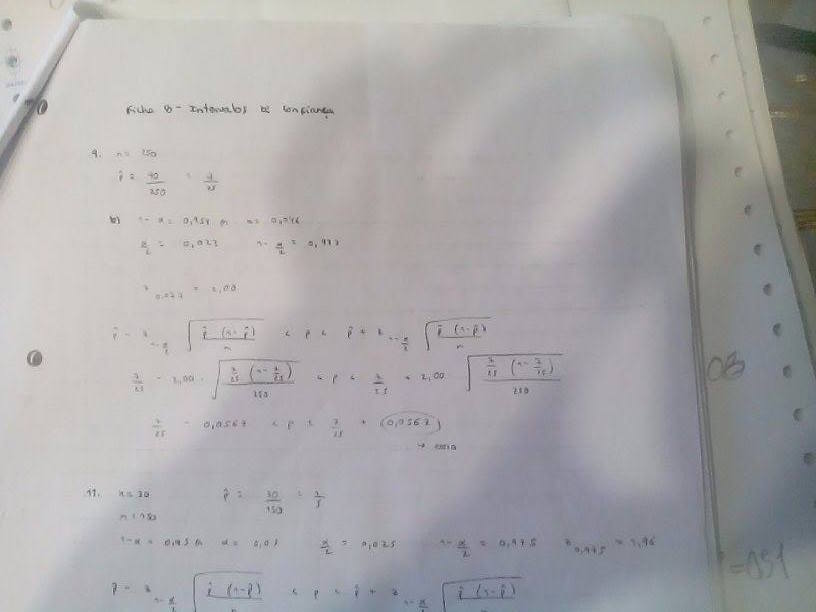 Ficha 8 - Intervalos de confiança
9. n = 250
p̂ = 70/250 = 7/25
b) 1-α = 0,954 α = 0,046
α/2 = 0,023 1-α/2 = 0,977
z 0,977 = 2,00
p̂ - z 1-α/2 √(p̂ (1-p̂)/n) < p < p̂ + z 1-α/2 √(p̂ (1-p̂)/n)
7/25 - 2,00 · √(7/25 (1-7/25)/250) < p < 7/25 + 2,00 √(7/25 (1-7/25)/250)
7/25 - 0,0567 < p < 7/25 + 0,0567
→ erro
11. x = 30 p̂ = 30/150 = 1/5
n = 150
1-α = 0,95 α = 0,05 α/2 = 0,025 1-α/2 = 0,975 z 0,975 = 1,96
p̂ - z 1-α/2 √(p̂ (1-p̂)/n) < p < p̂ + z 1-α/2 √(p̂ (1-p̂)/n)